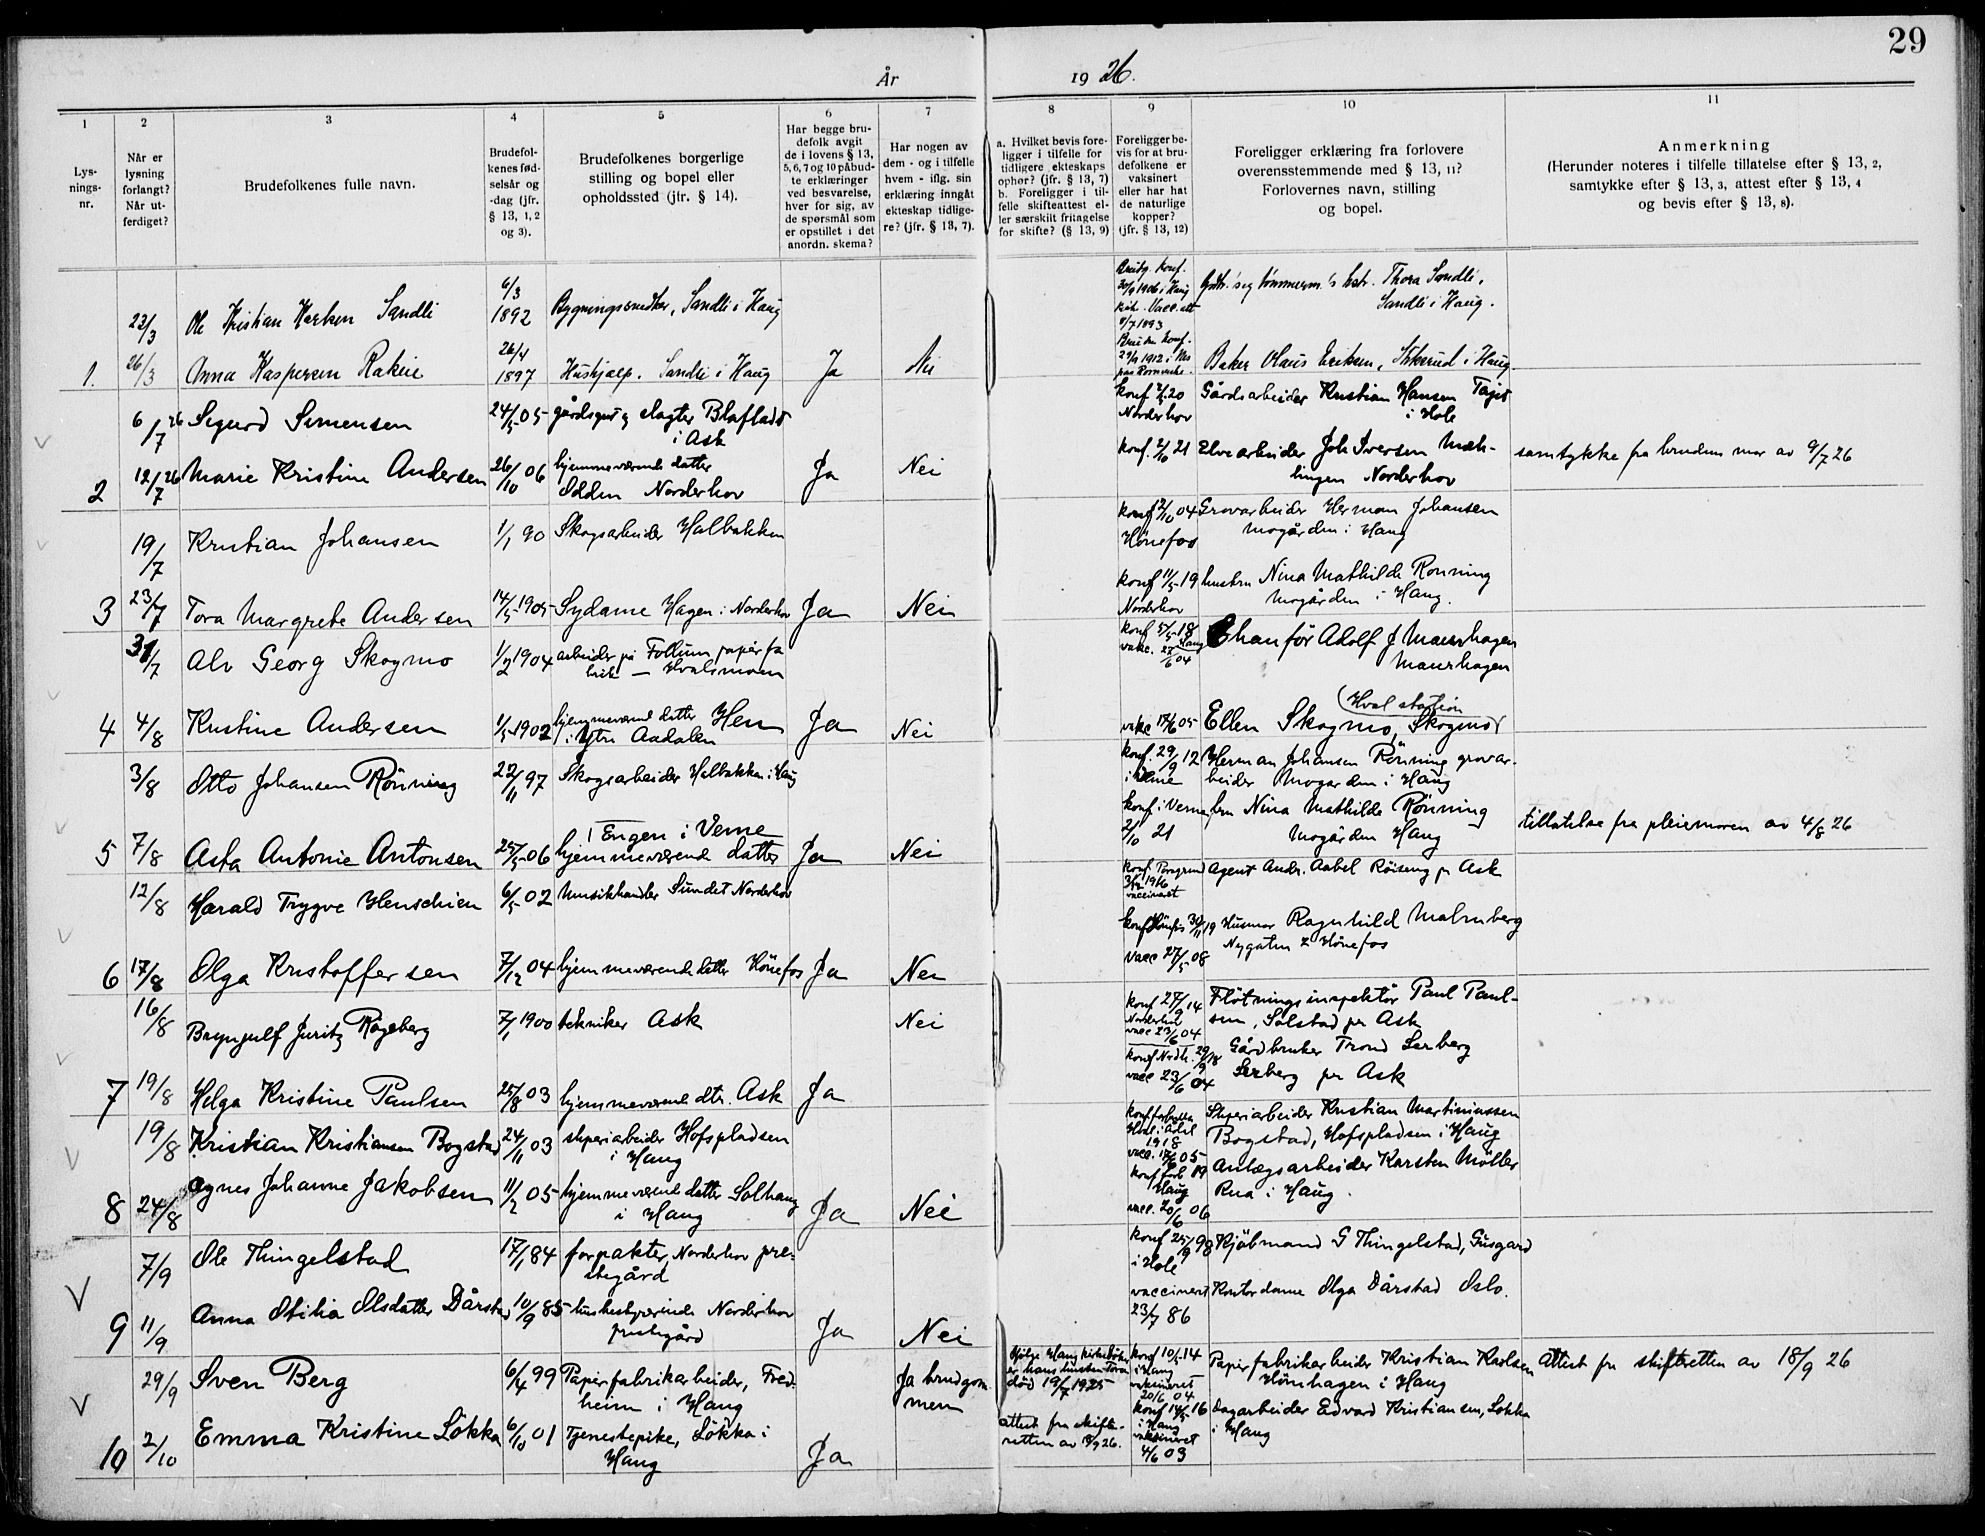 29
År 1926.
1
2
3
4
5
6
7
8
9
10
11
Lys-
nings-
nr.
Når er
lysning
forlangt?
Når ut-
ferdiget?
Brudefolkenes fulle navn.
Brudefol-
kenes fød-
selsår og
-dag (jfr.
§ 13, 1, 2
og 3).
Brudefolkenes borgerlige
stilling og bopel eller
opholdssted (jfr. § 14).
Har begge bru-
defolk avgit
de i lovens § 13,
5, 6, 7 og 10 påbud-
te erklæringer
ved besvarelse,
hver for sig, av
de spørsmål som
er opstillet i det
anordn. skema?
Har nogen av
dem - og i tilfelle
hvem - iflg. sin
erklæring inngått
ekteskap tidlige-
re? (jfr. § 13, 7).
a. Hvilket bevis fore-
ligger i tilfelle for
tidligere ekteskaps
ophør? (jfr. § 13, 7)
b. Foreligger i til-
felle skifteattest el-
ler særskilt fritagelse
for skifte? (§ 13, 9)
Foreligger be-
vis for at bru-
defolkene er
vaksinert
eller har hat
de naturlige
kopper?
(jfr. § 13, 12)
Foreligger erklæring fra forlovere
overensstemmende med § 13, 11?
Forlovernes navn, stilling
og bopel.
Anmerkning
(Herunder noteres i tilfelle tillatelse efter § 13, 2,
samtykke efter § 13, 3, attest efter § 13, 4
og bevis efter § 13, 8).
22/3 Ole Kristian Sandli 6/3 1892 Bygningssnedker, Sandli i Haug
Konf. 1906 i Haug Vacc. att 1893 Thora Sandli, Sandli i Haug.
1. 26/3 Anna Kaspersen Rakeie 26/4 1897 Hushjælp. Sandli i Haug Ja Nei
Konf. 1912 Baker Olaus Eriksen, i Haug.
6/7 26 Sigurd Simensen 24/5 05 gårdsgut og slagter i Ask
konf 20 Norderhov Gårdsarbeider Kristian Hansen i Hole
2 12/7 26 Marie Kristine Andersen 26/10 06 hjemmeværende datter Odden Norderhov Ja Nei
konf. 2/10 21 Elvearbeider Joh Iversen Mæh-
lingen Norderhov
samtykke fra brudens mor av 9/7 26
19/7 Kristian Johansen 1/1 90 Skogsarbeider Halbakken
konf 2/10 04 Hönefos Grovarbeider Herman Johansen
Mogården i Haug
3 23/7 Tora Margrete Andersen 14/5 1905 Sydame Hagen i Norderhov Ja Nei
konf 11/5 19 Norderhov hustru Nina Mathilde Rönning
Mogården i Haug.
31/7 Alv Georg Skogmo 1/2 1904 arbeider på Follum papirfa
brik — Hvalsmoen
konf 5/5 18 Haug vakc. 27/6 04 Chauför Adolf J Maurhagen
Maurhagen
4 4/8 Kristine Andersen 1/5 1902 hjemmeværende datter Hen
i Ytre Aadalen Ja Nei
vakc 17/6 05 Ellen Skogmo, Skogmo
(Hval station
3/8 Otto Johansen Rönning 22/11 97 Skogsarbeider Helbakken i Haug
konf. 29/9 12 Herman Johansen Rönning grovar-
beider Mogarden i Haug
5 7/8 Asta Antonie Antonsen 25/5 06 hjemmeværende datter
Engen i Verne Ja Nei
konf. i Verne 2/10 21 fru Nina Mathilde Rönning
Mogården Haug
tillatelse fra pleiemoren av 4/8 26
12/8 Harald Trygve Henschien 6/5 02 Musikhandler Sundet Norderhov
konf. Porsgrund 1916 vaccineret Agent Andr. Aabel Röiseng pr Ask
6 17/8 Olga Kristoffersen 7/12 04 hjemmeværende datter Hönefos Ja Nei
konf Hönefos 30/11 19 Husmor Ragnhild Malmberg
vacc 27/5 08 Nygaten 2 Hönefos
16/8 Bryngulf Juritz Rögeberg 7/1 1900 tekniker Ask Nei
konf 27/9 14 Norderhov vacc 23/6 04 Flötningsinspektör Paul Paul-
sen, Solstad pr Ask
7 19/8 Helga Kristine Paulsen 25/8 03 hjemmeværende dtr. Ask Ja
konf Nordh. 29/9 18 vacc 23/6 04 Gårdbruker Trond Lerberg
Lerberg pr Ask
19/8 Kristian Kristiansen Bogstad 24/11 03 sliperiarbeider Hofspladsen
i Haug
1918 vacc. 17/6 05 Sliperiarbeider Kristian Martiniussen
Bogstad, Hofspladsen i Haug
8 24/8 Agnes Johanne Jakobsen 11/2 05 hjemmeværende datter Solhaug
i Haug Ja Nei
konf 19 Haug vacc. 20/6 06 Anlægsarbeider Karsten Möller
Rua i Haug.
7/9 Ole Thingelstad 17/1 84 forpakter, Norderhov pre-
stegård
konf 25/9 98 i Hole Kjöbmand G Thingelstad, Gusgard
9 11/9 Anna Otilia Olsdatter Dårstad 10/9 85 husbestyrerinde Norderhov
prestegård Ja Nei
vaccinert 23/7 86 Kontordame Olga Dårstad Oslo.
29/9 Sven Berg 6/4 99 Papirfabrikarbeider, Fred-
heim i Haug Ja brudgom-
men
Ifölge Haug kirkebøker
er hans hustru Tora
död 19/7 1925
konf 10/5 14
i Haug
vaksineret
20/6 04
Papirfabrikarbeider Kristian Karlsen
Hönhagen i Haug
Attest fra skifteretten av 18/9 26
10 2/10 Emma Kristine Lökka 6/10 01 Tjenestepike, Lökka i
Haug Ja
attest fra skifte-
retten av 18/9 26.
konf 14/5 16
i Haug
vaksineret
4/6 03
Dagarbeider Edvard Kristiansen, Lökka
i Haug